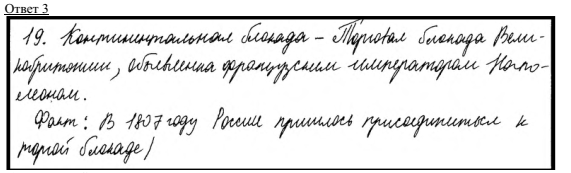 Ответ 3
19. Континентальная блокада – Торговая блокада Вели-
кобритании, объявленна французским императором Напо-
леоном.
Факт: В 1807 году России пришлось присоединиться к
торой блокаде/